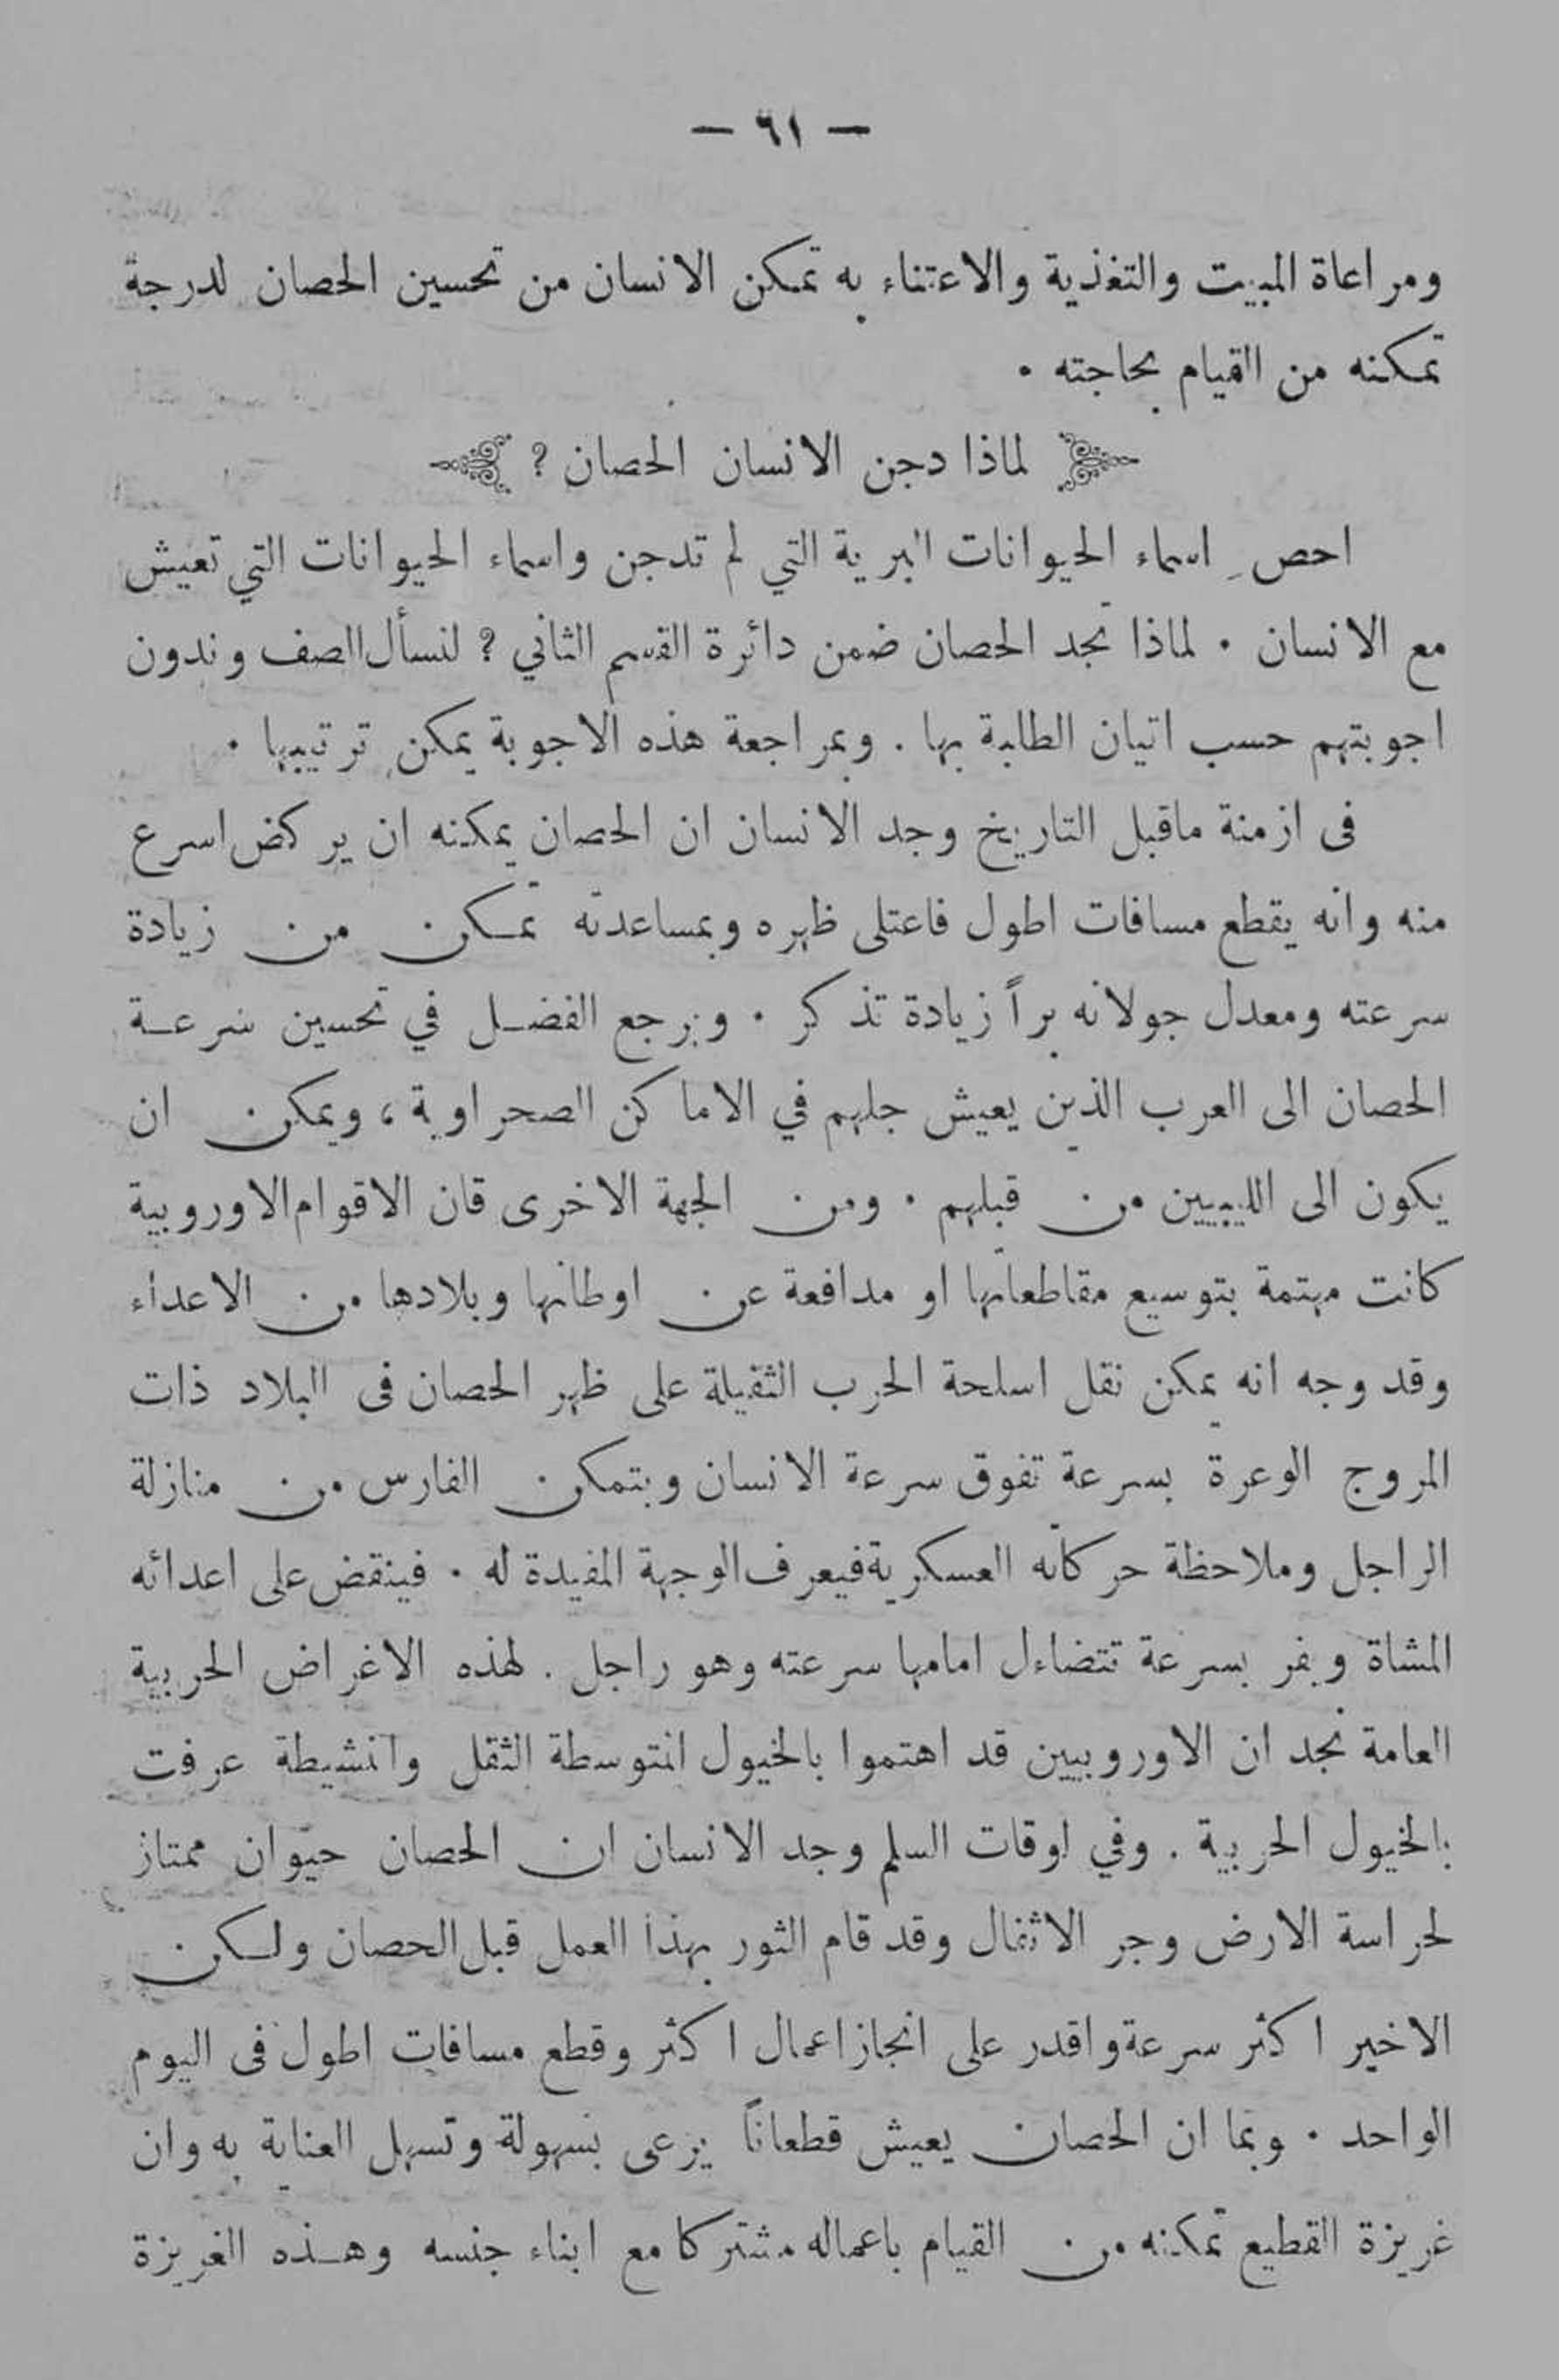 — ٦١ —
ومراعاة المبيت والتغذية والاعتناء به تمكن الانسان من تحسين الحصان لدرجة
تمكنه من القيام بحاجته .
لماذا دجن الانسان الحصان ؟
احص ِ اسماء الحيوانات البرية التي لم تدجن واسماء الحيوانات التي تعيش
مع الانسان . لماذا نجد الحصان ضمن دائرة القسم الثاني ؟ لنسأل الصف وندون
اجوبتهم حسب اتيان الطلبة بها . وبمراجعة هذه الاجوبة يمكن ترتيبها .
فى ازمنة ماقبل التاريخ وجد الانسان ان الحصان يمكنه ان يركض اسرع
منه وانه يقطع مسافات اطول فاعتلى ظهره وبمساعدته تمكن من زيادة
سرعته ومعدل جولانه براً زيادة تذكر . ويرجع الفضل في تحسين سرعة
الحصان الى العرب الذين يعيش جلهم في الاماكن الصحراوية ، ويمكن ان
يكون الى الليبيين من قبلهم . ومن الجهة الاخرى فان الاقوام الاوروبية
كانت مهتمة بتوسيع مقاطعاتها او مدافعة عن اوطانها وبلادها من الاعداء
وقد وجه انه يمكن نقل اسلحة الحرب الثقيلة على ظهر الحصان فى البلاد ذات
المروج الوعرة بسرعة تفوق سرعة الانسان ويتمكن الفارس من منازلة
الراجل وملاحظة حركاته العسكرية فيعرف الوجهة المفيدة له . فينقض على اعدائه
المشاة ويفر بسرعة تتضاءل امامها سرعته وهو راجل . لهذه الاغراض الحربية
العامة نجد ان الاوروبيين قد اهتموا بالخيول المتوسطة الثقل والنشيطة عرفت
بالخيول الحربية . وفي اوقات السلم وجد الانسان ان الحصان حيوان ممتاز
لحراسة الارض وجر الاثقال وقد قام الثور بهذا العمل قبل الحصان ولكن
الاخير اكثر سرعة واقدر على انجاز اعمال اكثر وقطع مسافات اطول فى اليوم
الواحد . وبما ان الحصان يعيش قطعاناً يرعى بسهولة وتسهل العناية به وان
غريزة القطيع تمكنه من القيام باعماله مشتركا مع ابناء جنسه وهذه الغريزة